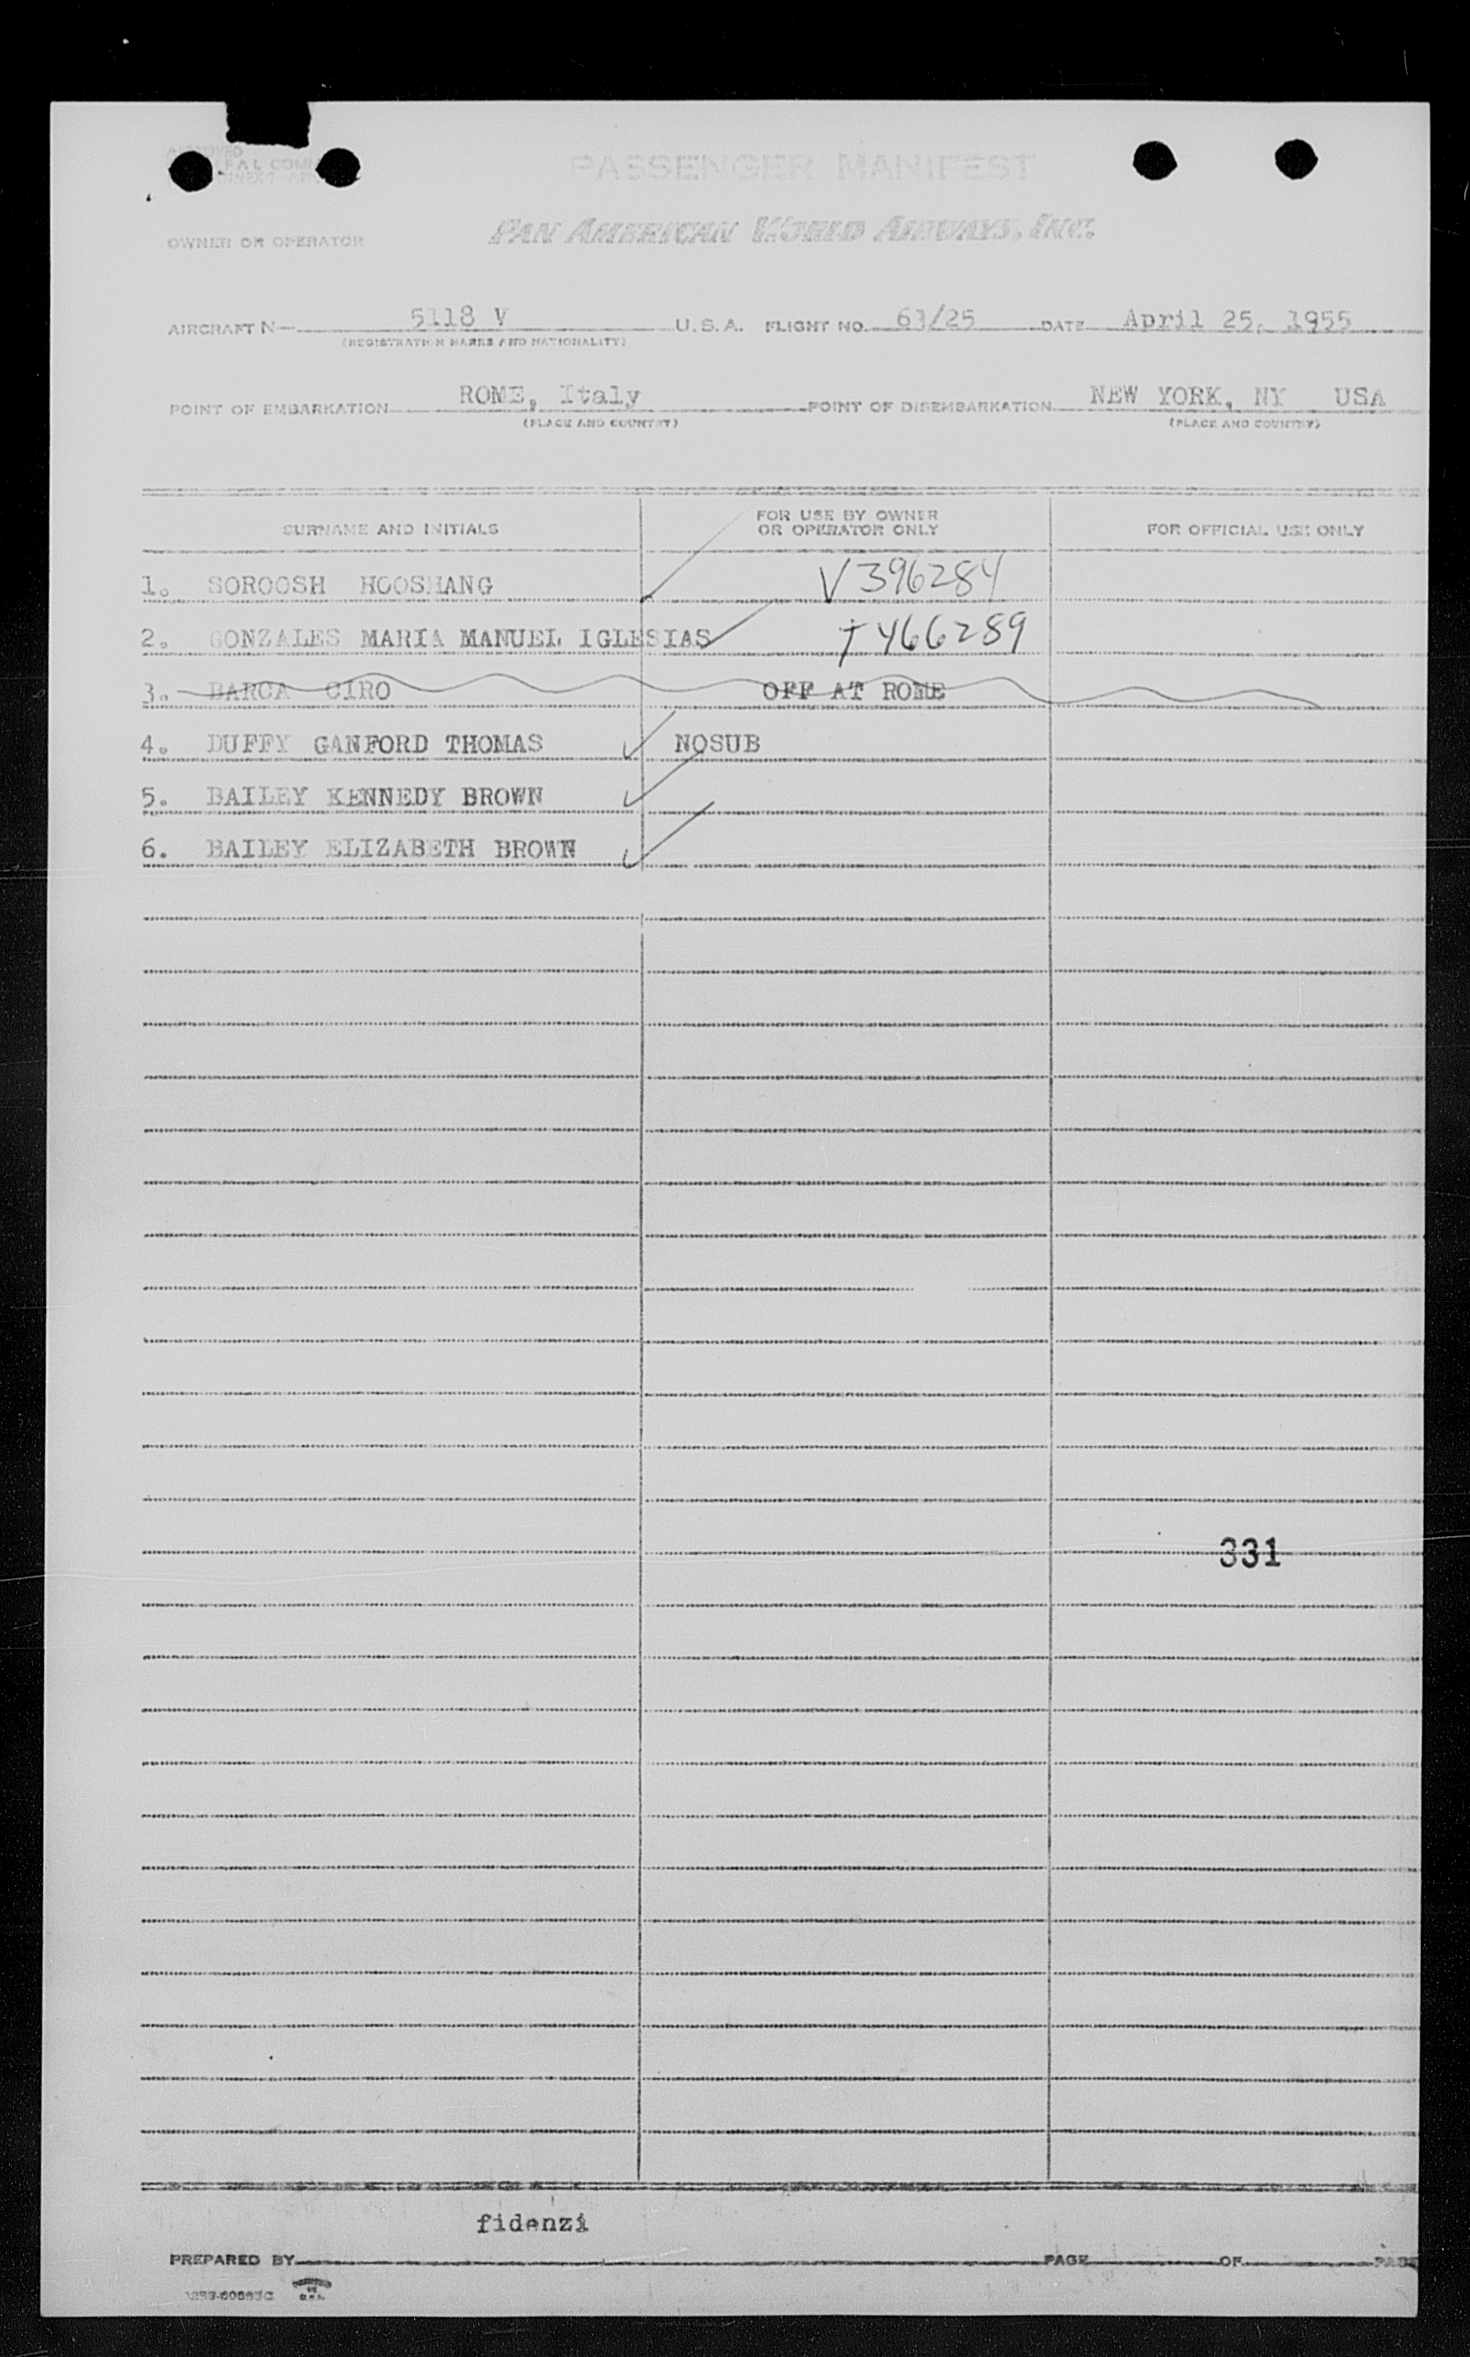 APPROVED
PASSENGER MANIFEST
OWNER OR OPERATOR PAN AMERICAN WORLD AIRWAYS, INC.
AIRCRAFT N— 5118 V U.S.A. FLIGHT NO. 63/25 DATE April 25, 1955
(REGISTRATION MARKS AND NATIONALITY)
POINT OF EMBARKATION ROME, Italy POINT OF DISEMBARKATION NEW YORK, NY USA
(PLACE AND COUNTRY) (PLACE AND COUNTRY)
SURNAME AND INITIALS FOR USE BY OWNER OR OPERATOR ONLY FOR OFFICIAL USE ONLY
1. SOROOSH HOOSHANG V396284
2. GONZALES MARIA MANUEL IGLESIAS T466289
3. BARCA CIRO OFF AT ROME
4. DUFFY GANFORD THOMAS NOSUB
5. BAILEY KENNEDY BROWN
6. BAILEY ELIZABETH BROWN
331
fidenzi
PREPARED BY PAGE OF PAGE